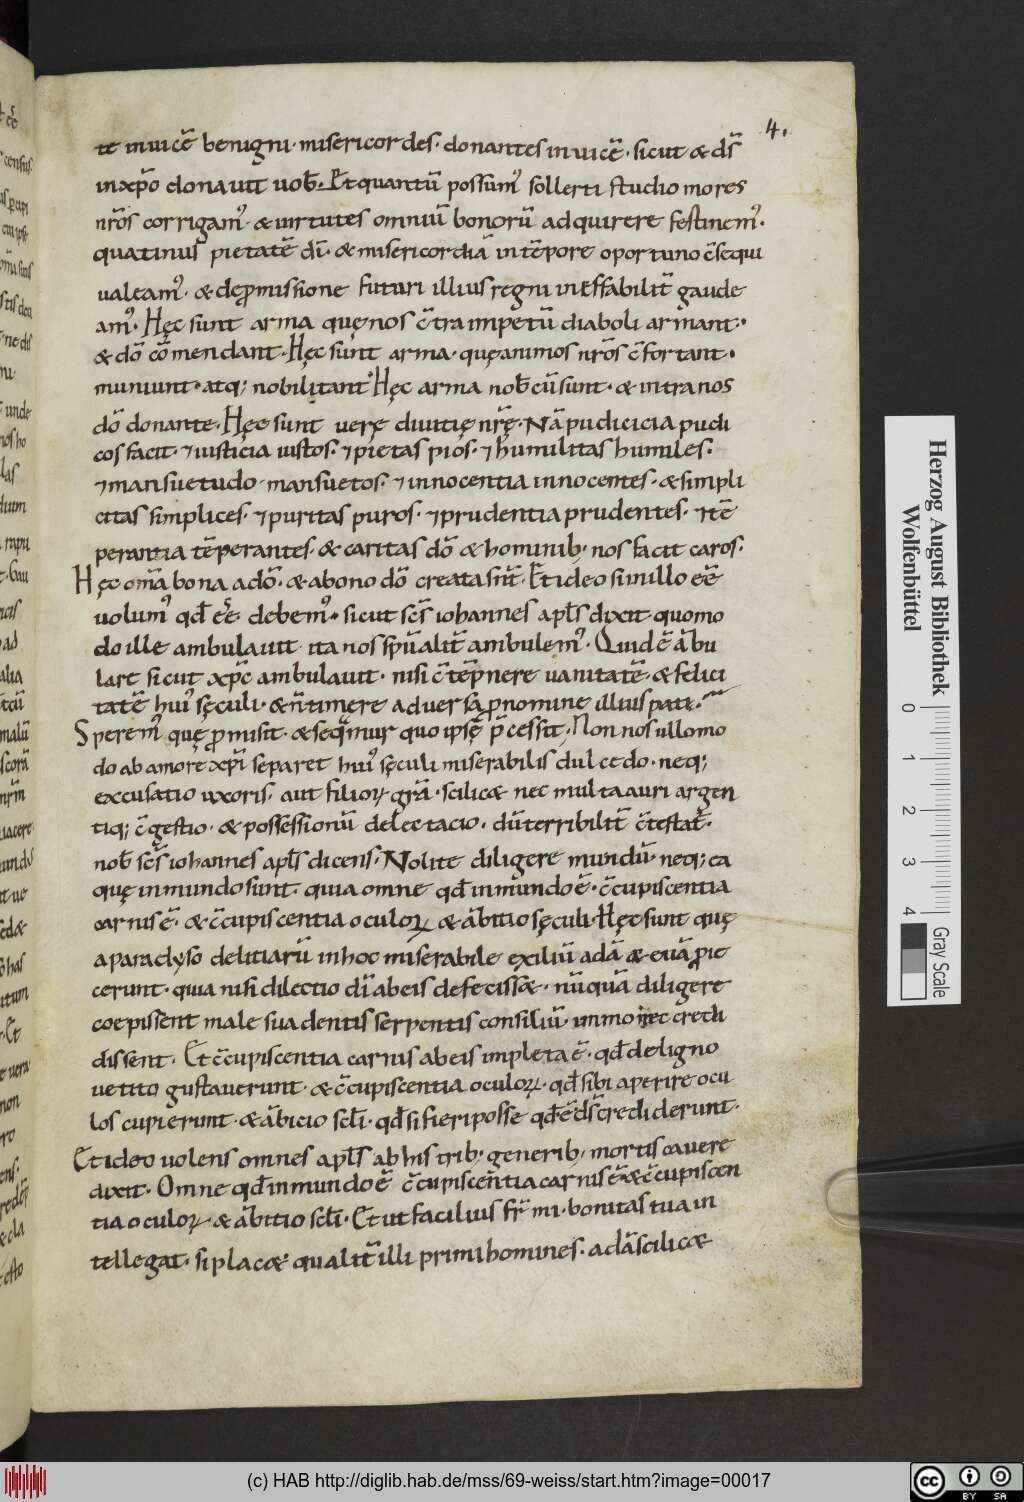 4.
te inuicē benigni· misericordes· donantes inuicē· sicut & ds̄
inxp̄o donauit uob̄· Et quantū possum᾿ sollerti studio mores
nr̄os corrigam᾿· & uirtutes omniū bonorū adquirere festinem᾿·
quatinus pietatē dī· & misericordiā intēpore oportuno c̄sequi
ualeam᾿· & dep̱missione futuri illius regni inEffabilit̄ gaude
am᾿· Hęc sunt arma quęnos c̄tra impetū diaboli armant·
& dō cōmendant· Hęc sunt arma· quęanimos nr̄os c̄fortant·
muniunt· atq; nobilitant· Hęc arma nob̄cūsunt· & intra nos
dō donante· Hęc sunt uerę diuitię nr̄ę· Nā pudicicia pudi
cos facit· ⁊iusticia iustos· ⁊pietas pios· ⁊humilitas humiles·
⁊mansuetudo mansuetos· ⁊innocentia innocentes· &simpli
citas simplices· ⁊puritas puros· ⁊prudentia prudentes· ⁊tē
perantia tēperantes· & caritas dō & hominib; nos facit caros·
Hęc om̄a bona a dō· & abono dō creata sn̄t· Et ideo si in illo eē
uolum᾿ qd̄ eē debem᾿· sicut sc̄s iohannes apl̄s dixit· quomo
do ille ambulauit ita nos sp̄ualit̄ ambulem᾿· Quid ē ābu
lare sicut xp̄c ambulauit· nisi c̄tēpnere uanitatē· & felici
tatē hui᾿ sęculi· & n̄timere aduersa p̱nomine illius pati·
Sperem᾿ quę p̱misit· & seq̄mur quo ipsę p̄cessit· Non nos ullomo
do ab amore xp̄i separet hui᾿ sęculi miserabilis dulcedo· neq;
excusatio uxoris· aut filioꝝ grā· scilic& nec multa auri argen
tiq; c̄gestio· & possessionū delectacio· dū terribilit̄ c̄testat̄·
nob̄ sc̄s iohannes apl̄s dicens· Nolite diligere mundū· neq; ea
quę inmundo sunt· quia omne qd̄ inmundo ē· c̄cupiscentia
carnis ē· & c̄cupiscentia oculoꝝ & ābitio sęculi· Hęc sunt quę
a paradyso delitiarū in hoc miserabile exiliū adā & euā p̱ie
cerunt· quia nisi dilectio dī abeis defeciss&· nūquā diligere
coepissent male suadentis serpentis consiliū· immo nec credi
dissent· Et c̄cupiscentia carnis abeis impleta ē· qd̄ deligno
uetito gustauerunt· & c̄cupiscentia oculoꝝ· qd̄ sibi aperire ocu
los cupierunt· & ābicio scl̄i· qd̄ si fieri posse qd̄ ē ds̄ crediderunt·
Et ideo uolens omnes apl̄s ab his trib; generib; mortis cauere
dixit· Omne qd̄ inmundo ē c̄cupiscentia carnis ē & c̄cupiscen
tia oculoꝝ· & ābitio scl̄i· Et ut facilius fr̄ mi· bonitas tua in
tellegat· si plac&· qualit̄ illi primi homines· adā scilic&
Herzog August Bibliothek
Wolfenbüttel
0 1 2 3 4
Gray Scale
(c) HAB http://diglib.hab.de/mss/69-weiss/start.htm?image=00017
cc BY SA